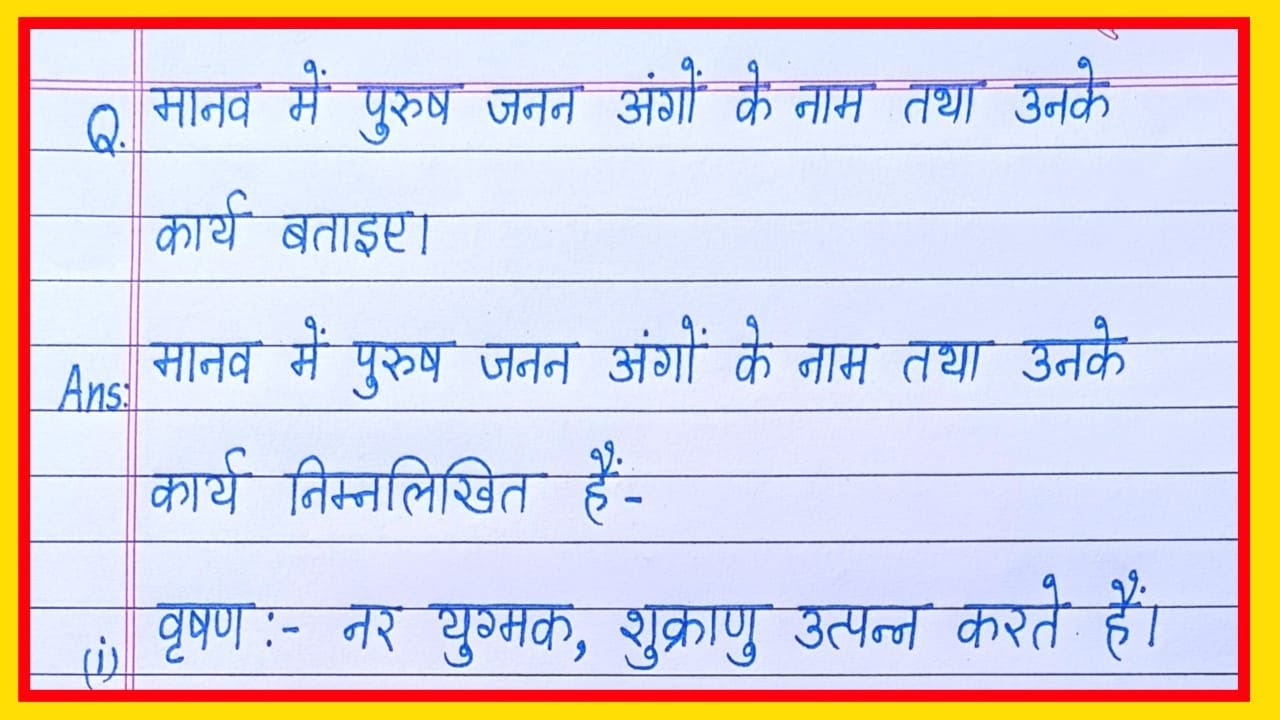 Q. मानव में पुरुष जनन अंगों के नाम तथा उनके
कार्य बताइए।
Ans: मानव में पुरुष जनन अंगों के नाम तथा उनके
कार्य निम्नलिखित हैं-
(i) वृषण :- नर युग्मक, शुक्राणु उत्पन्न करते हैं।